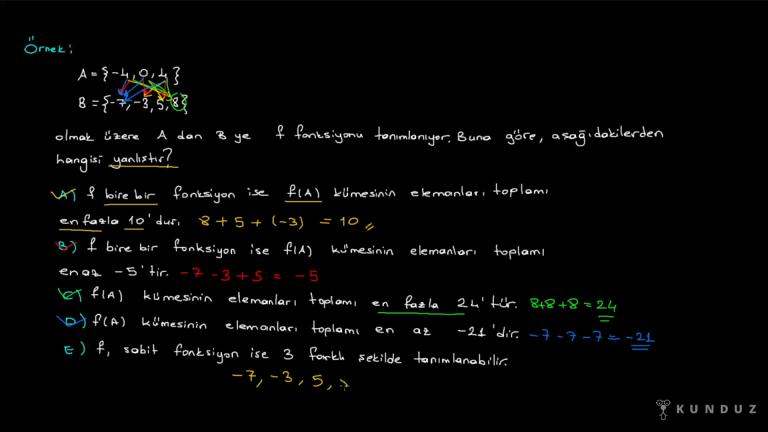 Örnek:
A = {-4, 0, 4}
B = {-7, -3, 5, 8}
olmak üzere A dan B ye f fonksiyonu tanımlanıyor. Buna göre, aşağıdakilerden
hangisi yanlıştır?
A) f bire bir fonksiyon ise f(A) kümesinin elemanları toplamı
en fazla 10'dur. 8+5+(-3) = 10
B) f bire bir fonksiyon ise f(A) kümesinin elemanları toplamı
en az -5'tir. -7-3+5 = -5
C) f(A) kümesinin elemanları toplamı en fazla 24'tür. 8+8+8 = 24
D) f(A) kümesinin elemanları toplamı en az -21'dir. -7-7-7 = -21
E) f, sabit fonksiyon ise 3 farklı şekilde tanımlanabilir.
-7, -3, 5,
KUNDUZ